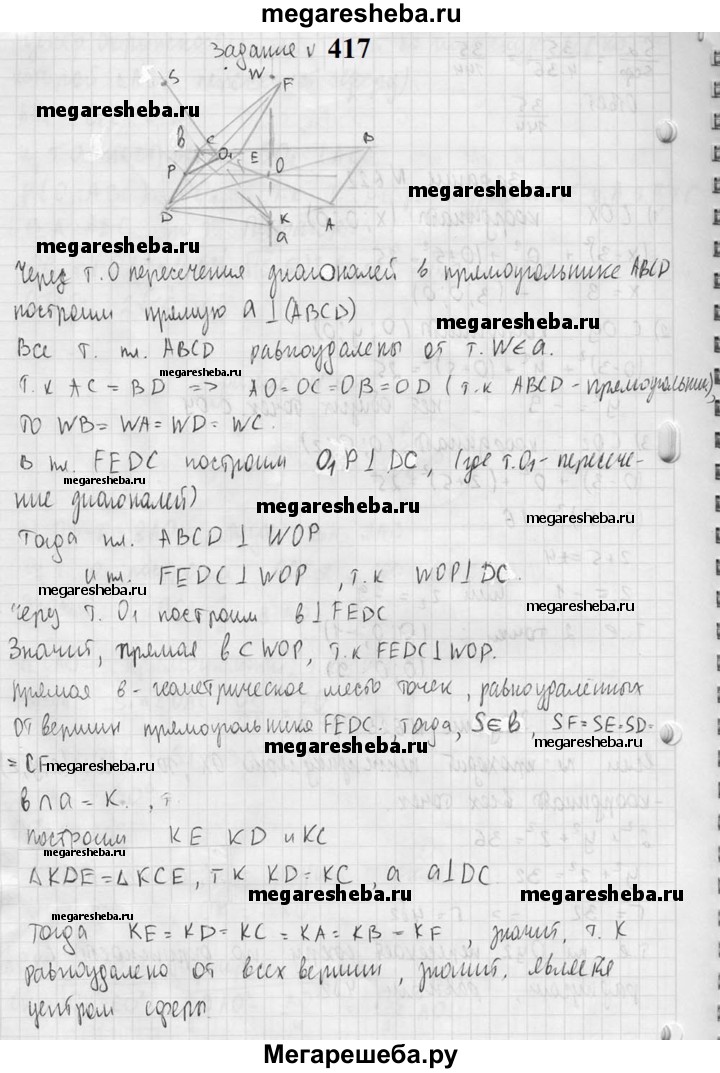 megaresheba.ru
задание № 417
S W F
megaresheba.ru
в C O₁ E B
P O
megaresheba.ru
D K A
megaresheba.ru
a
Через т. O пересечения диагоналей в прямоугольнике ABCD
построим прямую a ⊥ (ABCD)
megaresheba.ru
Все т. пл. ABCD равноудалены от т. W∈a.
megaresheba.ru
т.к AC = BD => AO=OC=OB=OD (т.к ABCD - прямоугольник),
то WB= WA= WD= WC.
в пл. FEDC построим O₁P⊥DC, (где т.O₁ - пересече-
megaresheba.ru
ние диагоналей)
megaresheba.ru
Тогда пл. ABCD ⊥ WOP
и пл. FEDC⊥WOP, т.к WOP⊥DC.
megaresheba.ru
megaresheba.ru
Через т. O₁ построим в⊥FEDC
Значит, прямая в⊂WOP, т.к FEDC⊥WOP.
Прямая в - геометрическое место точек, равноудаленных
от вершин прямоугольника FEDC, тогда, S∈B, SF=SE=SD=
megaresheba.ru
megaresheba.ru
= CF
megaresheba.ru
в∩a = K., т.
построим KE KD и KC
megaresheba.ru
ΔKDE=ΔKCE, т к KD=KC, а a⊥DC
megaresheba.ru
megaresheba.ru
Тогда KE = KD= KC = KA= KB = KF, значит, т. K
равноудалено от всех вершин, значит, является
центром сферы
Мегарешеба.ру